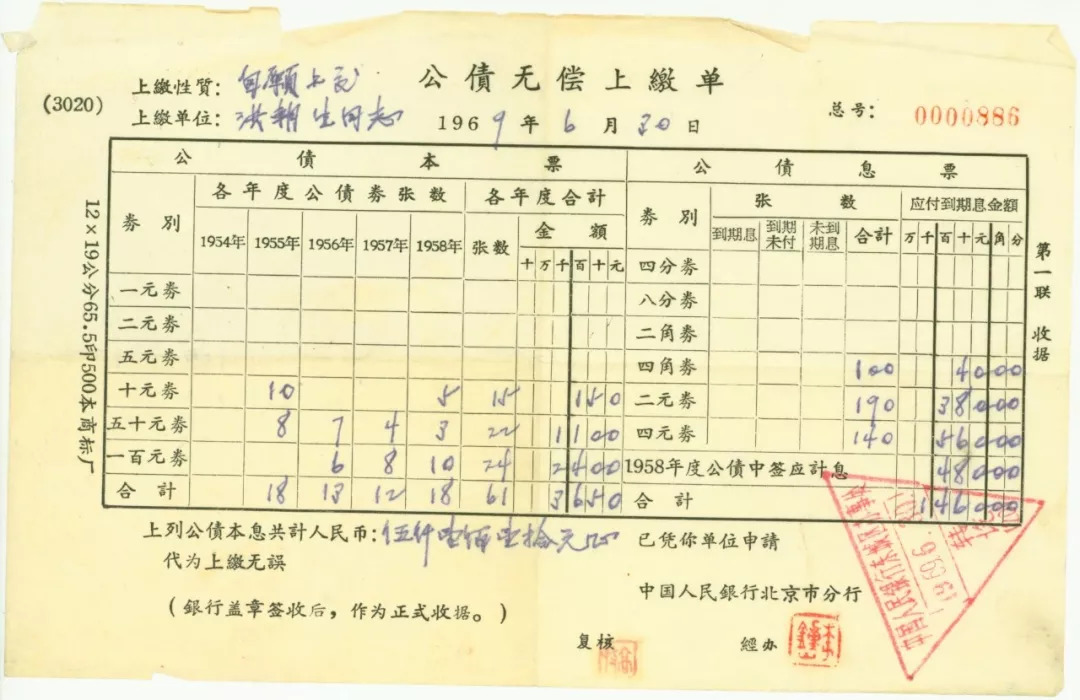 公債无偿上繳单
(3020)
上繳性質：自願上交
上繳单位：洪朝生同志
1969年6月30日
总号：0000886
公債本票
公債息票
券別 各年度公債券张数 各年度合計
1954年 1955年 1956年 1957年 1958年 张数 金額
十万千百十元
券別 张数 应付到期息金額
到期息 到期未付 未到期息 合計 万千百十元角分
一元券
二元券
五元券
十元券 10 5 15 150
五十元券 8 7 4 3 22 1100
一百元券 6 8 10 24 2400
合計 18 13 12 18 61 3650
四分券
八分券
二角券
四角券 100 4000
二元券 190 38000
四元券 140 56000
1958年度公債中签应計息 48000
合計 146000
上列公債本息共計人民币：伍仟壹佰壹拾元正
代为上繳无誤
已凭你单位申請
中国人民銀行北京市分行
（銀行盖章签收后，作为正式收据。）
复核
經办
12×19公分65.5印500本商标厂
第一联 收据
1969.6.